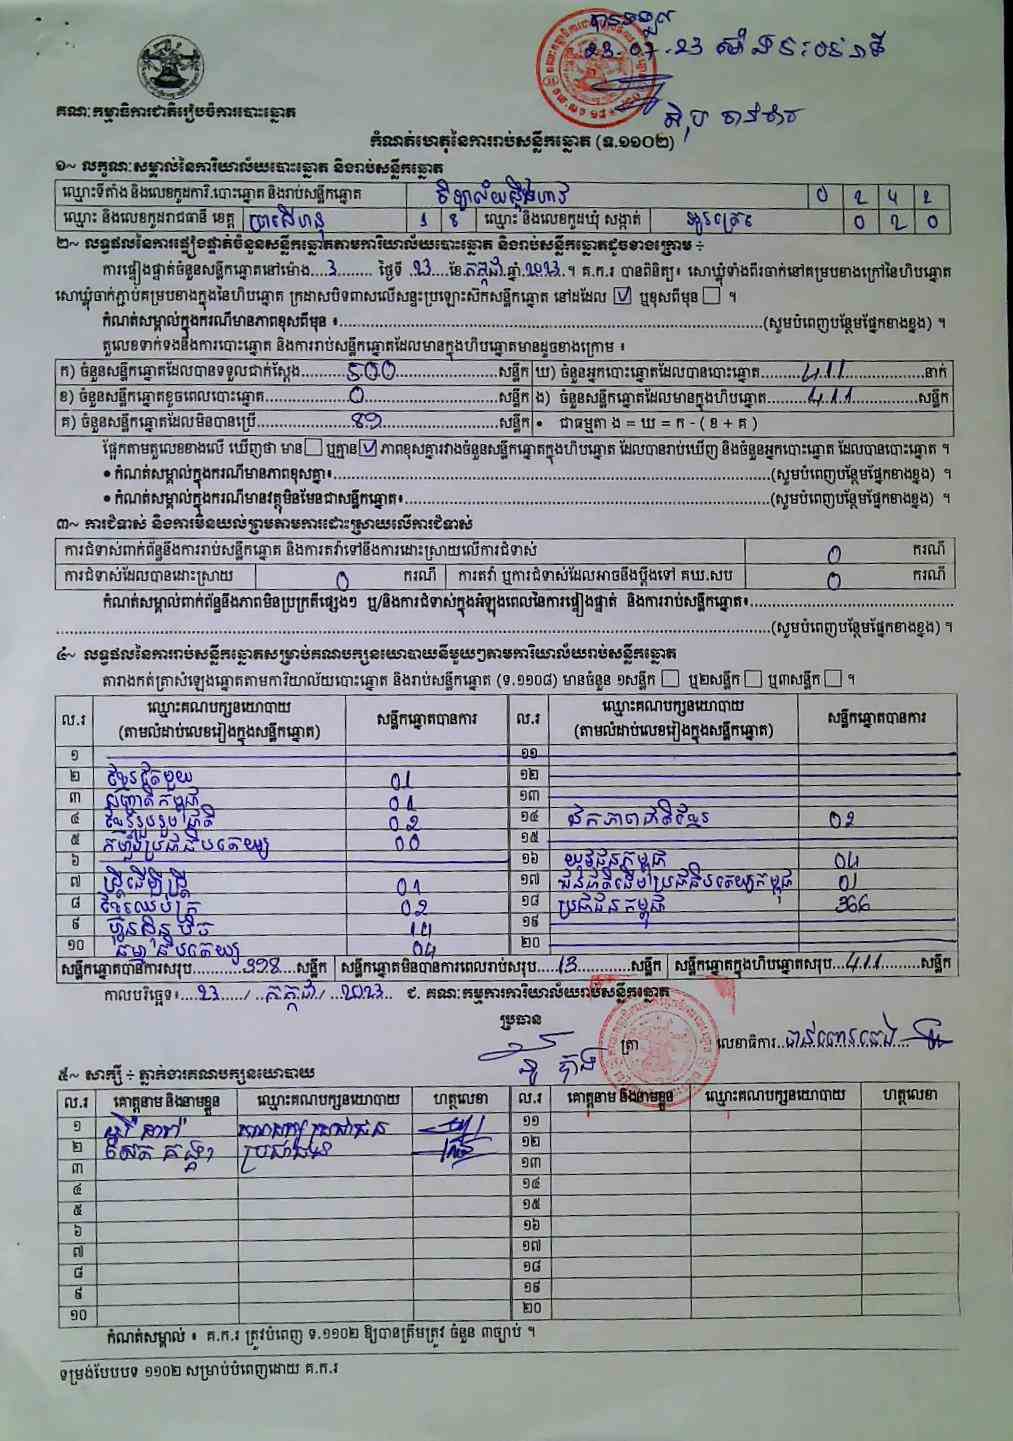 គណៈកម្មាធិការជាតិរៀបចំការបោះឆ្នោត
បានទទួល
23.07.23
កំណត់ហេតុនៃការរាប់សន្លឹកឆ្នោត (ទ.១១០២)
១~ លក្ខណៈសម្គាល់នៃការិយាល័យបោះឆ្នោត និងរាប់សន្លឹកឆ្នោត
ឈ្មោះទីតាំង និងលេខកូដការិ.បោះឆ្នោត និងរាប់សន្លឹកឆ្នោត វិទ្យាល័យស្ទឹងហាវ 0 2 4 2
ឈ្មោះ និងលេខកូដរាជធានី ខេត្ត ព្រះសីហនុ 1 8 ឈ្មោះ និងលេខកូដឃុំ សង្កាត់ អូរត្រេះ 0 2 0
២~ លទ្ធផលនៃការផ្ទៀងផ្ទាត់ចំនួនសន្លឹកឆ្នោតតាមការិយាល័យបោះឆ្នោត និងរាប់សន្លឹកឆ្នោតដូចខាងក្រោម ÷
ការផ្ទៀងផ្ទាត់ចំនួនសន្លឹកឆ្នោតនៅម៉ោង...3...... ថ្ងៃទី .23....ខែ.កក្កដា.ឆ្នាំ.2023.។ គ.ក.រ បានពិនិត្យ៖ សោឃ្លុំទាំងពីរចាក់នៅគម្របខាងក្រៅនៃហិបឆ្នោត
សោឃ្លុំចាក់ភ្ជាប់គម្របខាងក្នុងនៃហិបឆ្នោត ក្រដាសបិទពាសលើសន្ទះប្រឡោះស៊កសន្លឹកឆ្នោត នៅដដែល ☑ ឬខុសពីមុន ☐ ។
កំណត់សម្គាល់ក្នុងករណីមានភាពខុសពីមុន ៖......(សូមបំពេញបន្ថែមផ្នែកខាងខ្នង) ។
តួលេខទាក់ទងនឹងការបោះឆ្នោត និងការរាប់សន្លឹកឆ្នោតដែលមានក្នុងហិបឆ្នោតមានដូចខាងក្រោម ៖
ក) ចំនួនសន្លឹកឆ្នោតដែលបានទទួលជាក់ស្តែង......500......សន្លឹក ឃ) ចំនួនអ្នកបោះឆ្នោតដែលបានបោះឆ្នោត......411......នាក់
ខ) ចំនួនសន្លឹកឆ្នោតខូចពេលបោះឆ្នោត......0......សន្លឹក ង) ចំនួនសន្លឹកឆ្នោតដែលមានក្នុងហិបឆ្នោត......411......សន្លឹក
គ) ចំនួនសន្លឹកឆ្នោតដែលមិនបានប្រើ......89......សន្លឹក • ជាធម្មតា ង = ឃ = ក - ( ខ + គ )
ផ្អែកតាមតួលេខខាងលើ ឃើញថា មាន ☐ ឬគ្មាន ☑ ភាពខុសគ្នារវាងចំនួនសន្លឹកឆ្នោតក្នុងហិបឆ្នោត ដែលបានរាប់ឃើញ និងចំនួនអ្នកបោះឆ្នោត ដែលបានបោះឆ្នោត ។
• កំណត់សម្គាល់ក្នុងករណីមានភាពខុសគ្នា៖......(សូមបំពេញបន្ថែមផ្នែកខាងខ្នង) ។
• កំណត់សម្គាល់ក្នុងករណីមានវត្ថុមិនមែនជាសន្លឹកឆ្នោត៖......(សូមបំពេញបន្ថែមផ្នែកខាងខ្នង) ។
៣~ ការជំទាស់ និងការមិនយល់ព្រមតាមការដោះស្រាយលើការជំទាស់
ការជំទាស់ពាក់ព័ន្ធនឹងការរាប់សន្លឹកឆ្នោត និងការតវ៉ាទៅនឹងការដោះស្រាយលើការជំទាស់ 0 ករណី
ការជំទាស់ដែលបានដោះស្រាយ 0 ករណី ការតវ៉ា ឬការជំទាស់ដែលអាចនឹងប្តឹងទៅ គឃ.សប 0 ករណី
កំណត់សម្គាល់ពាក់ព័ន្ធនឹងភាពមិនប្រក្រតីផ្សេងៗ ឬ/និងការជំទាស់ក្នុងអំឡុងពេលនៃការផ្ទៀងផ្ទាត់ និងការរាប់សន្លឹកឆ្នោត៖......
......(សូមបំពេញបន្ថែមផ្នែកខាងខ្នង) ។
៤~ លទ្ធផលនៃការរាប់សន្លឹកឆ្នោតសម្រាប់គណបក្សនយោបាយនីមួយៗតាមការិយាល័យរាប់សន្លឹកឆ្នោត
តារាងកត់ត្រាសំឡេងឆ្នោតតាមការិយាល័យបោះឆ្នោត និងរាប់សន្លឹកឆ្នោត (ទ.១១០៨) មានចំនួន ១សន្លឹក ☐ ឬ២សន្លឹក ☐ ឬ៣សន្លឹក ☐ ។
ល.រ ឈ្មោះគណបក្សនយោបាយ (តាមលំដាប់លេខរៀងក្នុងសន្លឹកឆ្នោត) សន្លឹកឆ្នោតបានការ ល.រ ឈ្មោះគណបក្សនយោបាយ (តាមលំដាប់លេខរៀងក្នុងសន្លឹកឆ្នោត) សន្លឹកឆ្នោតបានការ
១ ១១
២ ខ្មែរតែមួយ 01 ១២
៣ សញ្ជាតិកម្ពុជា 01 ១៣
៤ ខ្មែររួបរួមជាតិ 02 ១៤ ឯកភាពជាតិខ្មែរ 02
៥ កម្លាំងប្រជាធិបតេយ្យ 00 ១៥
៦ ១៦ យុវជនកម្ពុជា 04
៧ ស្ត្រីដើម្បីស្ត្រី 01 ១៧ ជនជាតិដើមប្រជាធិបតេយ្យកម្ពុជា 01
៨ ខ្មែរឈប់ក្រ 02 ១៨ ប្រជាជនកម្ពុជា 366
៩ ហ្វ៊ុនស៊ិនប៉ិច 14 ១៩
១០ ធម្មាធិបតេយ្យ 04 ២០
សន្លឹកឆ្នោតបានការសរុប......398....សន្លឹក សន្លឹកឆ្នោតមិនបានការពេលរាប់សរុប....13......សន្លឹក សន្លឹកឆ្នោតក្នុងហិបឆ្នោតសរុប...411......សន្លឹក
កាលបរិច្ឆេទ៖....23...../ ..កក្កដា./ ..2023.. ជ. គណៈកម្មការការិយាល័យរាប់សន្លឹកឆ្នោត
ប្រធាន
ត្រា លេខាធិការ
៥~ សាក្សី ÷ ភ្នាក់ងារគណបក្សនយោបាយ
ល.រ គោត្តនាម និងនាមខ្លួន ឈ្មោះគណបក្សនយោបាយ ហត្ថលេខា ល.រ គោត្តនាម និងនាមខ្លួន ឈ្មោះគណបក្សនយោបាយ ហត្ថលេខា
១ គណបក្សប្រជាជន ១១
២ ប្រជាជន ១២
៣ ១៣
៤ ១៤
៥ ១៥
៦ ១៦
៧ ១៧
៨ ១៨
៩ ១៩
១០ ២០
កំណត់សម្គាល់ ៖ គ.ក.រ ត្រូវបំពេញ ទ.១១០២ ឱ្យបានត្រឹមត្រូវ ចំនួន ៣ច្បាប់ ។
ទម្រង់បែបបទ ១១០២ សម្រាប់បំពេញដោយ គ.ក.រ